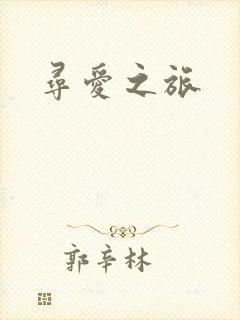 尋愛之旅
郭辛林